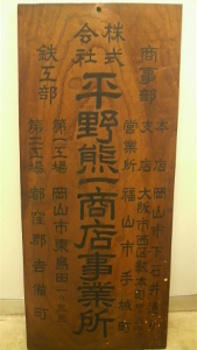 株式会社
平野熊一商店事業所
商事部
本店 岡山市下石井
支店 大阪市西区
営業所 福山市手城町
鉄工部
第一工場 岡山市東島田
第二工場 都窪郡吉備町